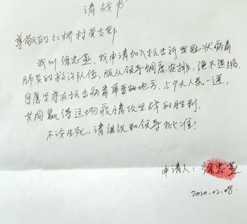 请战书
尊敬的仁桥村党支部
我叫 申请加入抗击新型冠状病毒
肺炎的救治队伍，服从领导调度安排，绝不退缩，
自愿坚守在抗击新病毒 地点，与 人民一道，
共同赢得这场疫情攻坚战的胜利。
不论生死，请组织和领导批准！
申请人：
2020.02.08